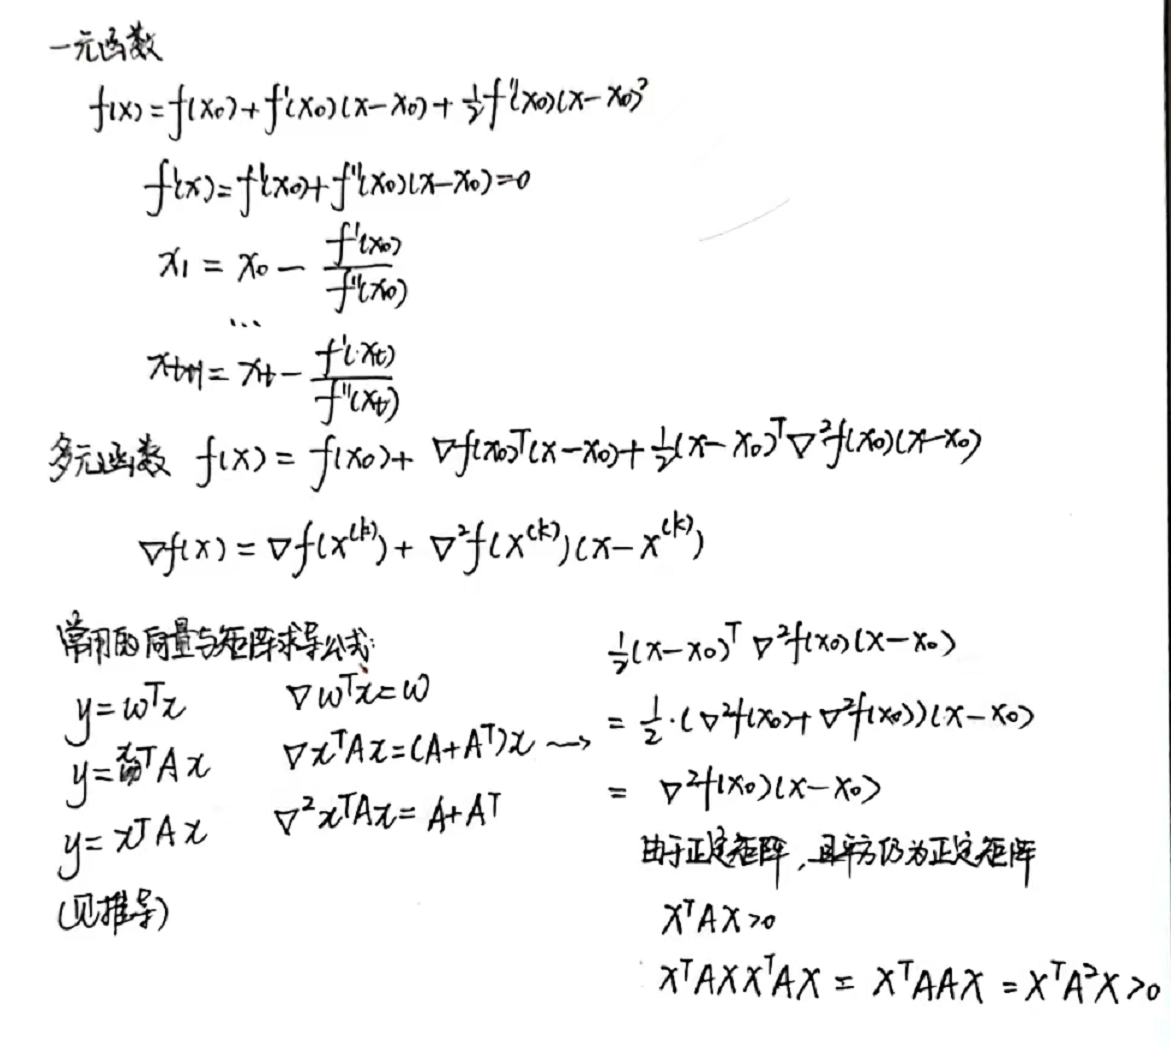 一元函数
f(x)=f(x₀)+f'(x₀)(x-x₀)+½f''(x₀)(x-x₀)²
f'(x)=f'(x₀)+f''(x₀)(x-x₀)=0
x₁ = x₀ - f'(x₀)/f''(x₀)
...
xₜ₊₁= xₜ - f'(xₜ)/f''(xₜ)
多元函数 f(x) = f(x₀)+ ∇f(x₀)ᵀ(x-x₀)+½(x-x₀)ᵀ∇²f(x₀)(x-x₀)
∇f(x) = ∇f(x⁽ᵏ⁾)+ ∇²f(x⁽ᵏ⁾)(x-x⁽ᵏ⁾)
常用的向量与矩阵求导公式:
y=ωᵀx ∇ωᵀx=ω
y=xᵀAx ∇xᵀAx=(A+Aᵀ)x →
y=xᵀAx ∇²xᵀAx= A+Aᵀ
(见推导)
½(x-x₀)ᵀ ∇²f(x₀)(x-x₀)
= ½·(∇²f(x₀)+∇²f(x₀))(x-x₀)
= ∇²f(x₀)(x-x₀)
由于正定矩阵,且平方仍为正定矩阵
XᵀAX>0
XᵀAXXᵀAX = XᵀAAX =XᵀA²X>0